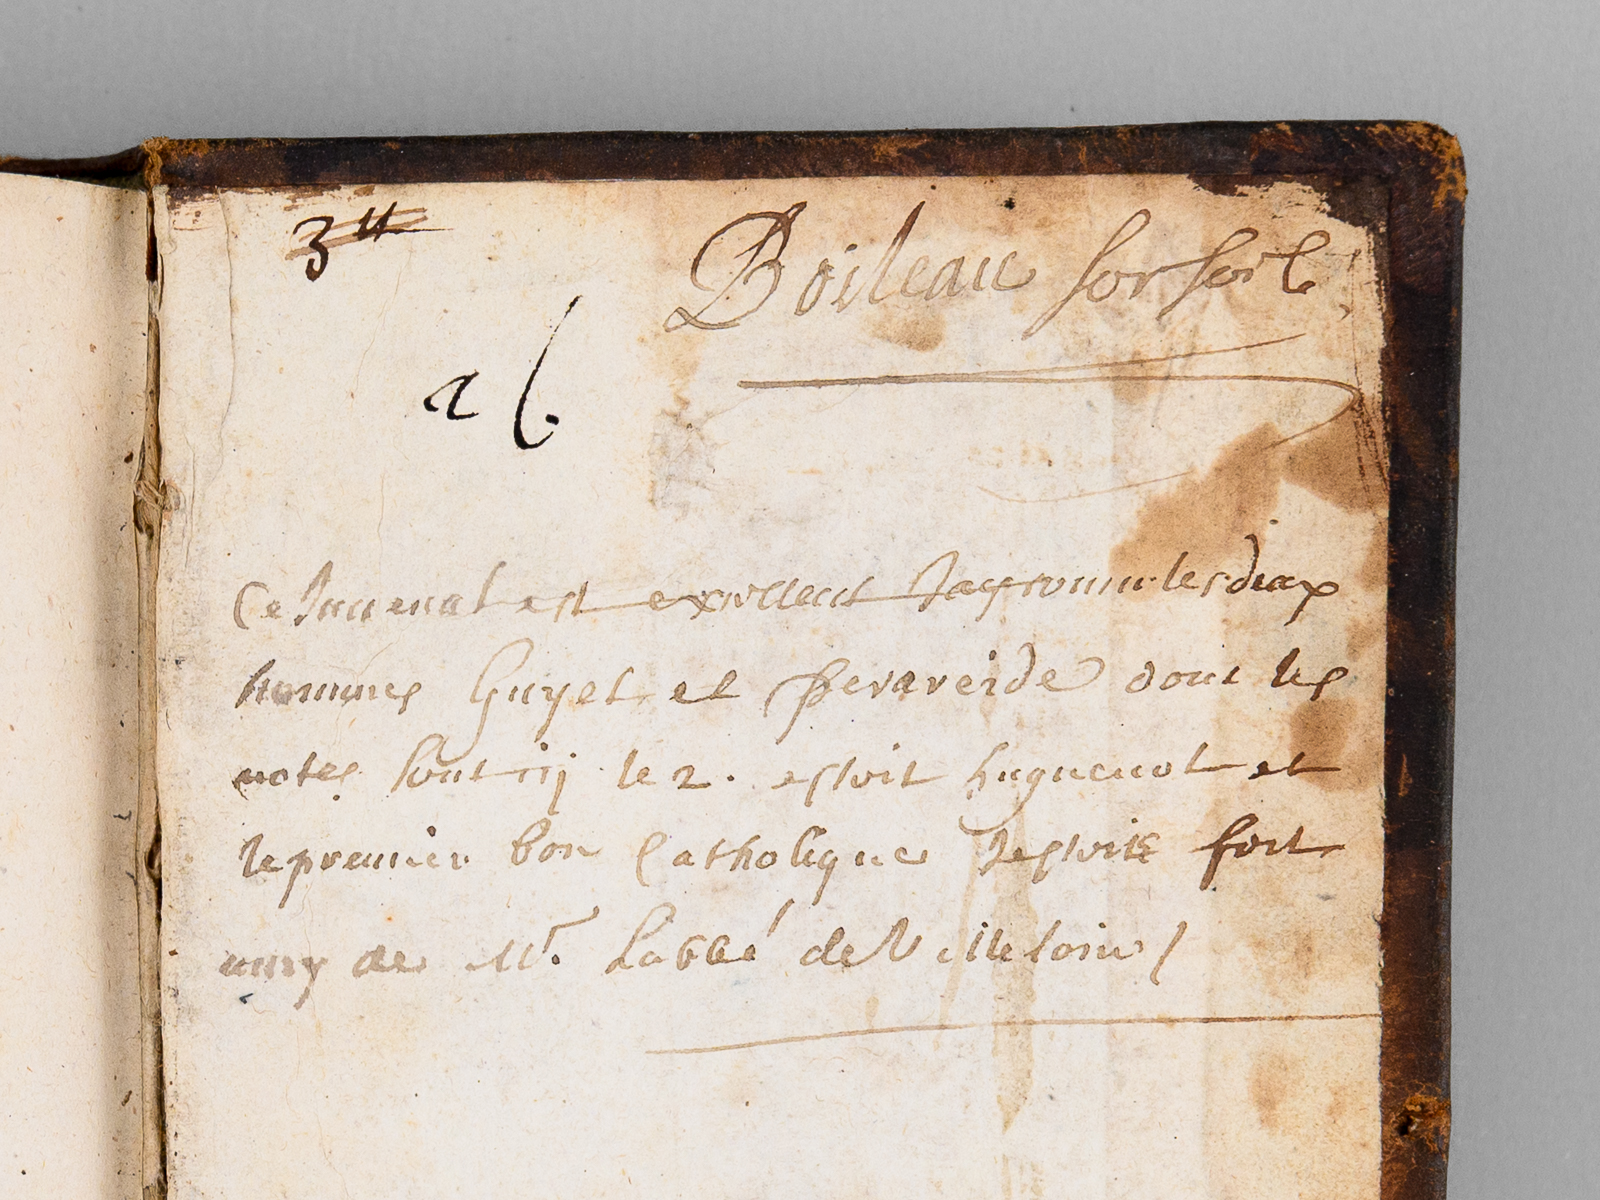 3 ₶
Boileau sorsoit
26.
Ce Juuenal est exellent Jay connu les deux
hommes Guyet et perareide dont les
notes sont icy le 2. estoit huguenot et
le premier bon Catholique Jestois fort
amy de Mr. Labbé de Villeloin /